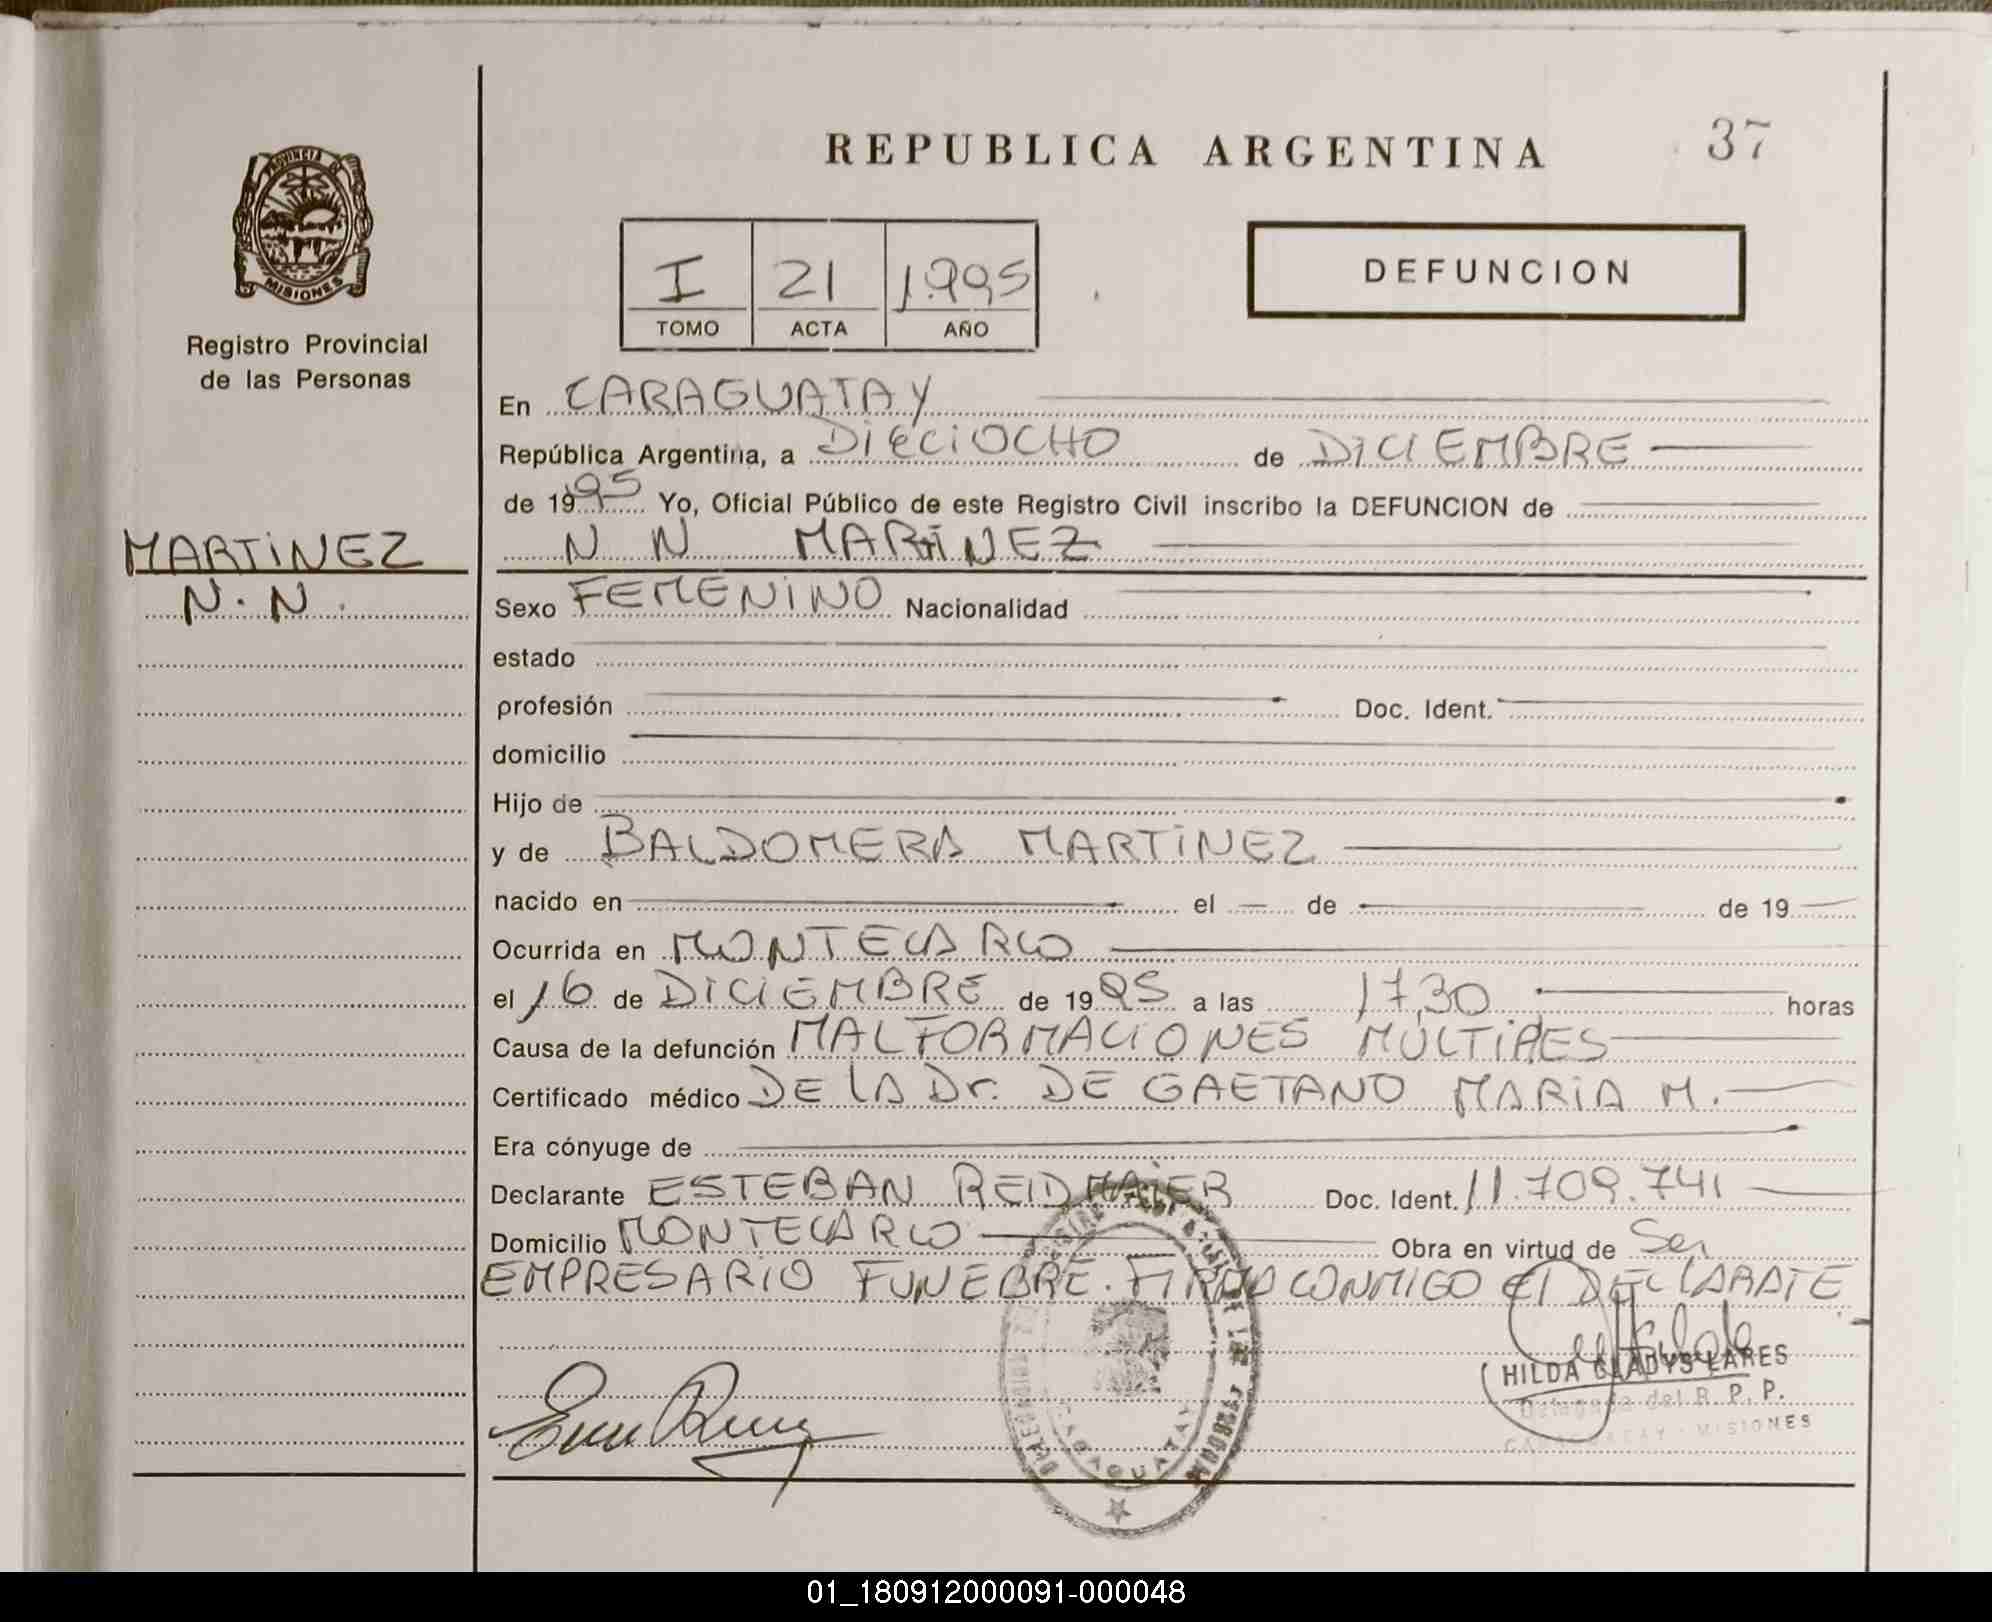 REPUBLICA ARGENTINA
37
PROVINCIA DE
MISIONES
Registro Provincial
de las Personas
I 21 1.995
TOMO ACTA AÑO
DEFUNCION
En CARAGUATAY
República Argentina, a DIECIOCHO de DICIEMBRE
de 1995 Yo, Oficial Público de este Registro Civil inscribo la DEFUNCION de
MARTINEZ
N N MARTINEZ
N. N.
Sexo FEMENINO Nacionalidad
estado
profesión Doc. Ident.
domicilio
Hijo de
y de BALDOMERA MARTINEZ
nacido en el de de 19
Ocurrida en MONTECARLO
el 16 de DICIEMBRE de 1995 a las 17,30 horas
Causa de la defunción MALFORMACIONES MULTIPLES
Certificado médico DE LA Dr. DE GAETANO MARIA M.
Era cónyuge de
Declarante ESTEBAN REIDMAIER Doc. Ident. 11.709.741
Domicilio MONTECARLO Obra en virtud de Ser
EMPRESARIO FUNEBRE. FIRMA CONMIGO El DECLARATE.
HILDA GLADYS LARES
Delegada del R. P. P.
CARAGUATAY - MISIONES
CARAGUATAY
01_180912000091-000048